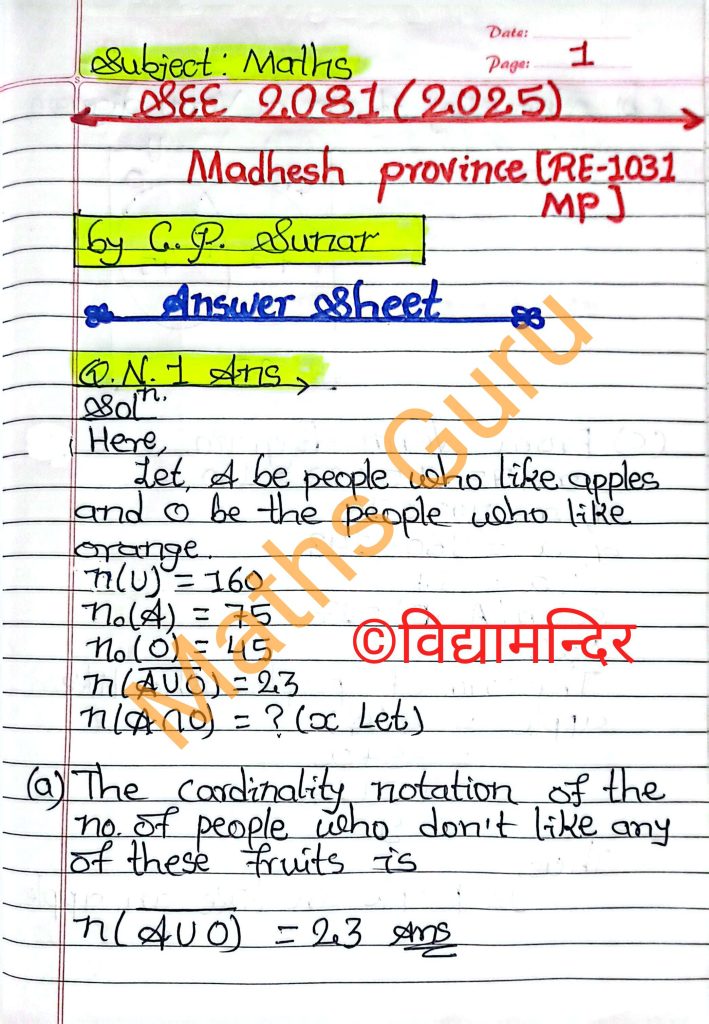 Date:
Page: 1
Subject: Maths
SEE 2081 (2025)
Madhesh province [RE-1031
MP]
by G.P. Sunar
Answer Sheet
Q.N. 1 Ans
Solⁿ.
Here,
Let, A be people who like apples
and O be the people who like
orange.
n(U) = 160
n₀(A) = 75
n₀(O) = 45
n(A̅ ̅U̅ ̅O̅) = 23
n(A∩O) = ? (x Let)
Maths Guru
©विद्यामन्दिर
(a) The cardinality notation of the
no. of people who don't like any
of these fruits is
n(A̅ ̅U̅ ̅O̅) = 23 Ans